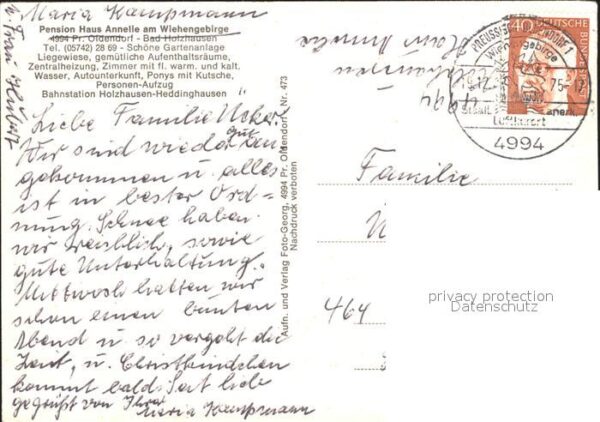 Maria Kampmann
u. Frau Herbst
Pension Haus Annelie am Wiehengebirge
4994 Pr. Oldendorf - Bad Holzhausen
Tel. (05742) 28 69 - Schöne Gartenanlage
Liegewiese, gemütliche Aufenthaltsräume,
Zentralheizung, Zimmer mit fl. warm. und kalt.
Wasser, Autounterkunft, Ponys mit Kutsche,
Personen-Aufzug
Bahnstation Holzhausen-Heddinghausen
Liebe Familie
Wir sind wieder gut an
gekommen u. alles
ist in bester Ord-
nung. Schnee haben
wir reichlich, sowie
gute Unterhaltung.
Mittwoch hatten wir
schon einen bunten
Abend u so vergeht die
Zeit, u. Christkindchen
kommt bald. Seit lieb
gegrüßt von Ihrer
Maria Kampmann
Aufn. und Verlag Foto-Georg, 4994 Pr. Oldendorf Nr. 473
Nachdruck verboten
Haus Annelie
Holzhausen
4994
40 DEUTSCHE BUNDESPOST
PREUSSISCH OLDENDORF 1
Wiehengebirge
75-17
Staatl. anerk.
Luftkurort
4994
Familie
464
privacy protection
Datenschutz